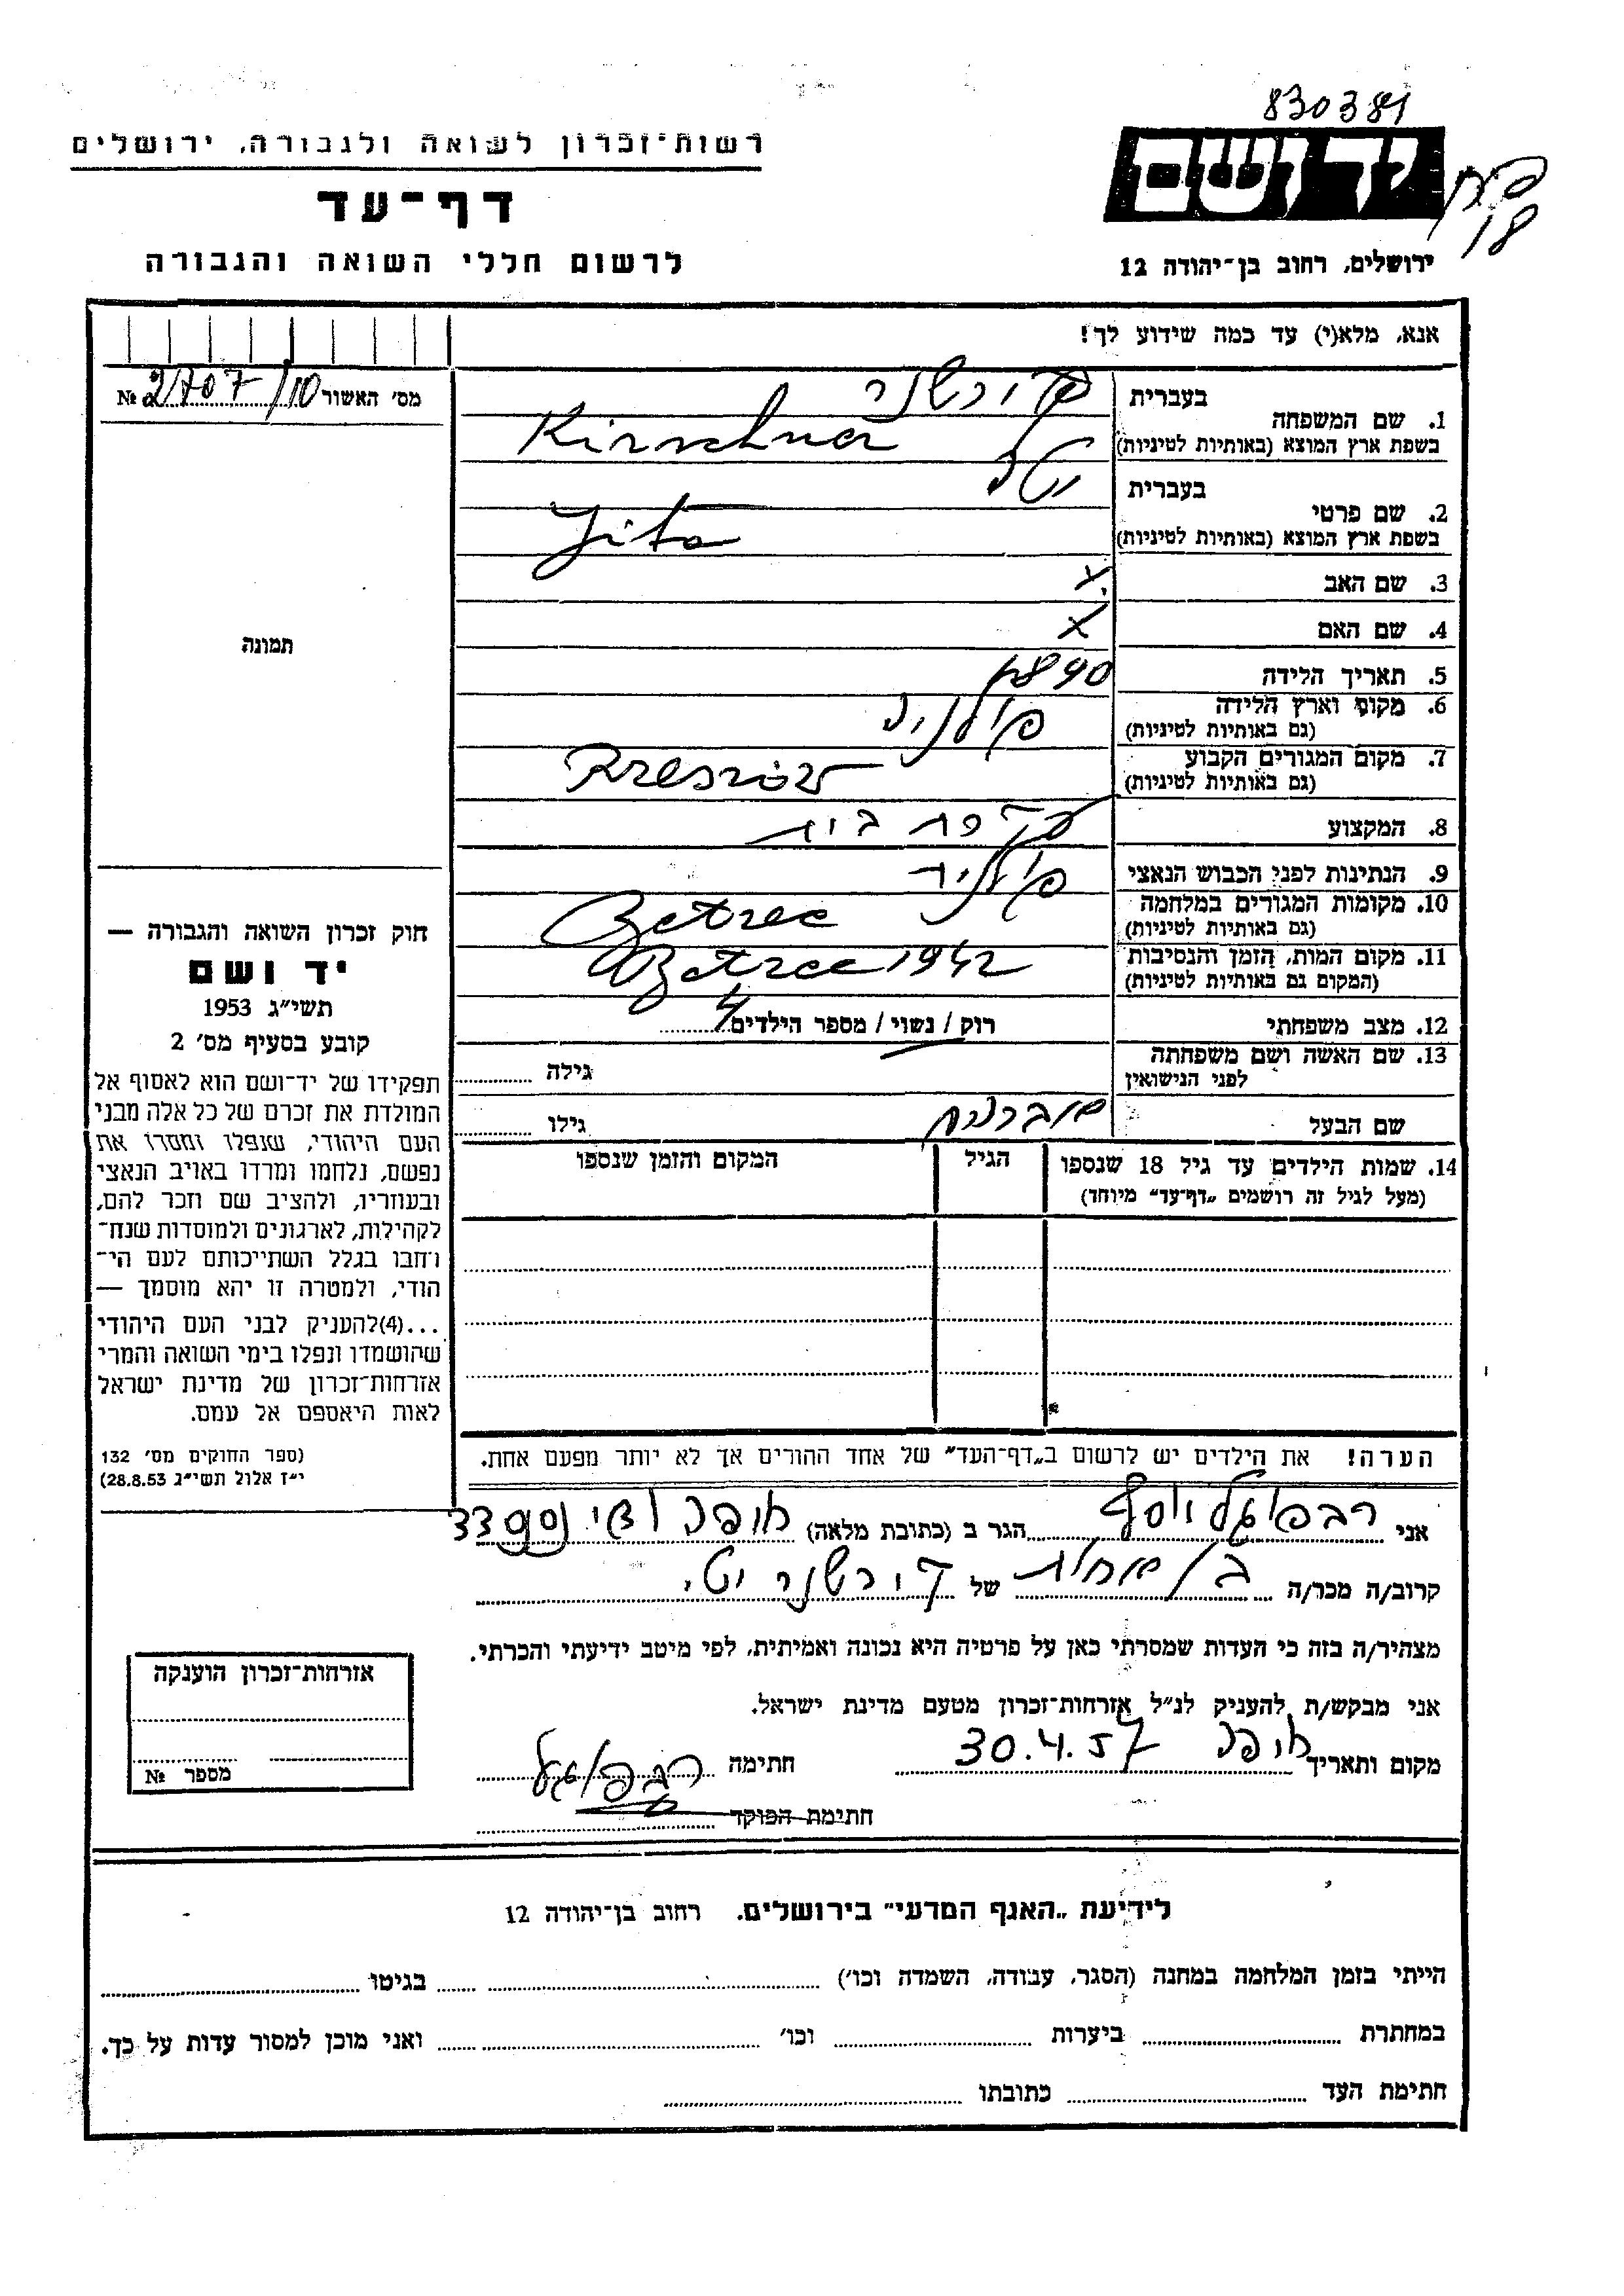 830381
רשות-זכרון לשואה ולגבורה, ירושלים
יד ושם
18
דף-עד
לרשום חללי השואה והגבורה
ירושלים, רחוב בן-יהודה 12
אנא, מלא(י) עד כמה שידוע לך!
מס' האשור 2707/10 №
1. שם המשפחה
בעברית קירשנר
בשפת ארץ המוצא (באותיות לטיניות) Kirschner
2. שם פרטי
בעברית יטה
בשפת ארץ המוצא (באותיות לטיניות) Jita
3. שם האב x
4. שם האם x
תמונה
5. תאריך הלידה 1890
6. מקום וארץ הלידה
(גם באותיות לטיניות) פולניה
7. מקום המגורים הקבוע
(גם באותיות לטיניות) Rzeszów
8. המקצוע עקרת בית
9. הנתינות לפני הכבוש הנאצי פולניה
10. מקומות המגורים במלחמה
(גם באותיות לטיניות) Betzec
11. מקום המות, הזמן והנסיבות
(המקום גם באותיות לטיניות) Betzec 1942
12. מצב משפחתי רוק / נשוי / מספר הילדים 4
13. שם האשה ושם משפחתה
לפני הנישואין גילה
שם הבעל גילו
14. שמות הילדים עד גיל 18 שנספו
(מעל לגיל זה רושמים "דף-עד" מיוחד)
הגיל
המקום והזמן שנספו
חוק זכרון השואה והגבורה —
יד ושם
תשי"ג 1953
קובע בסעיף מס' 2
תפקידו של יד-ושם הוא לאסוף אל
המולדת את זכרם של כל אלה מבני
העם היהודי, שנפלו ומסרו את
נפשם, נלחמו ומרדו באויב הנאצי
ובעוזריו, ולהציב שם וזכר להם,
לקהילות, לארגונים ולמוסדות שנח-
רבו בגלל השתייכותם לעם הי-
הודי, ולמטרה זו יהא מוסמך —
...(4)להעניק לבני העם היהודי
שהושמדו ונפלו בימי השואה והמרי
אזרחות-זכרון של מדינת ישראל
לאות היאספם אל עמם.
(ספר החוקים מס' 132
י"ז אלול תשי"ג 28.8.53)
הערה! את הילדים יש לרשום ב"דף-העד" של אחד ההורים אך לא יותר מפעם אחת.
אני רבפוגל יוסף הגר ב (כתובת מלאה) חיפה ואדי נסנס 33
קרוב/ה מכר/ה בן אחות של קירשנר יטי
מצהיר/ה בזה כי העדות שמסרתי כאן על פרטיה היא נכונה ואמיתית, לפי מיטב ידיעתי והכרתי.
אני מבקש/ת להעניק לנ"ל אזרחות-זכרון מטעם מדינת ישראל.
מקום ותאריך חיפה 30.4.57 חתימה רבפוגל
חתימת הפוקד
אזרחות-זכרון הוענקה
מספר №
לידיעת "האגף המדעי" בירושלים. רחוב בן-יהודה 12
הייתי בזמן המלחמה במחנה (הסגר, עבודה, השמדה וכו') בגיטו
במחתרת ביערות וכו' ואני מוכן למסור עדות על כך.
חתימת העד כתובתו